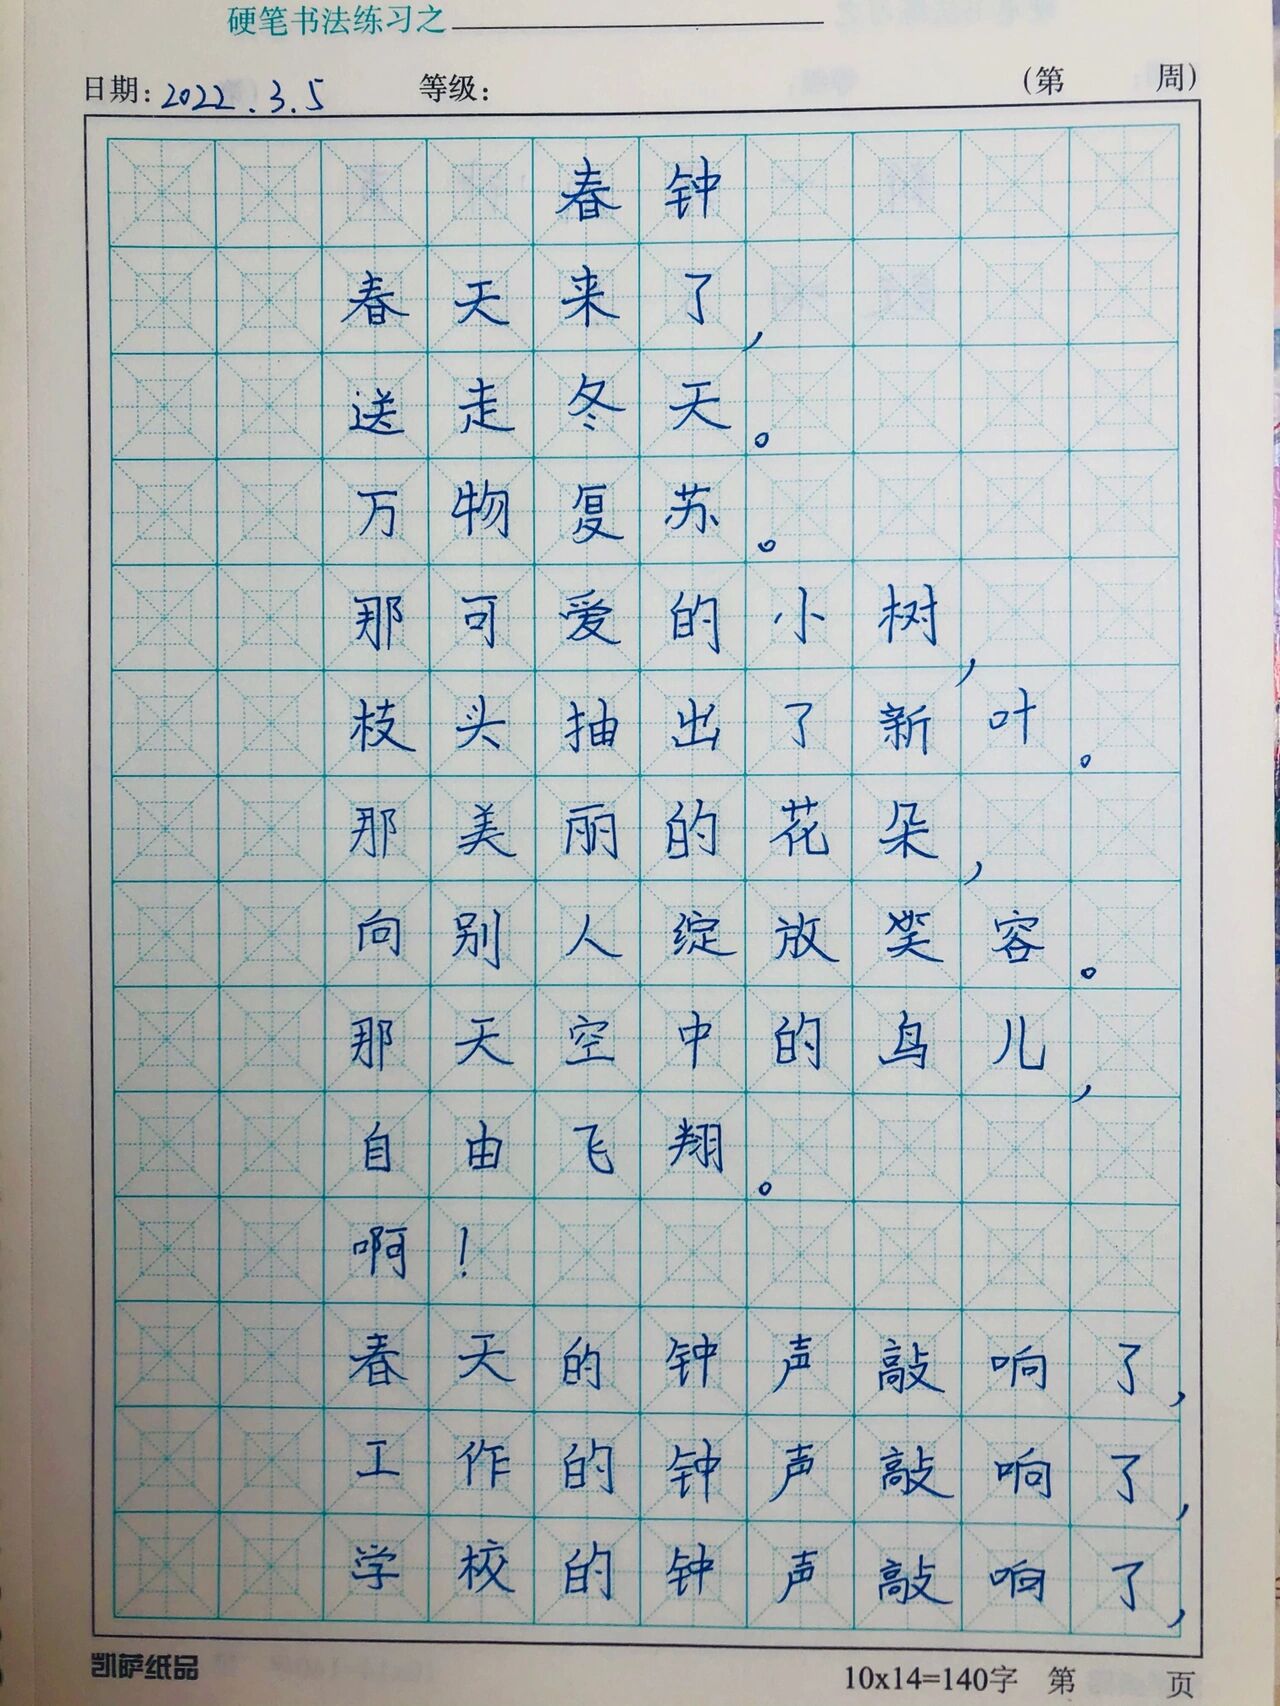 硬笔书法练习之
日期：2022.3.5 等级： （第 周）
春钟
春天来了，
送走冬天。
万物复苏。
那可爱的小树，
枝头抽出了新叶。
那美丽的花朵，
向别人绽放笑容。
那天空中的鸟儿，
自由飞翔。
啊！
春天的钟声敲响了，
工作的钟声敲响了，
学校的钟声敲响了，
凯萨纸品 10x14=140字 第 页